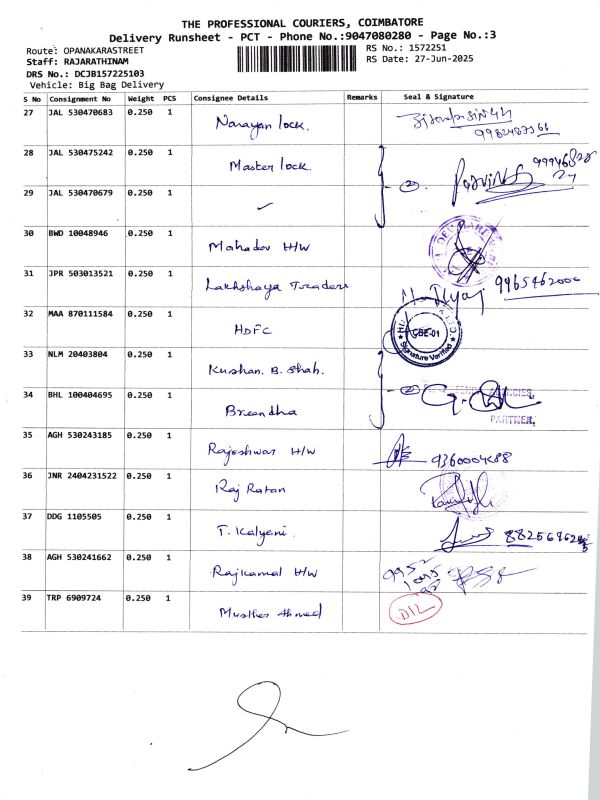 THE PROFESSIONAL COURIERS, COIMBATORE
Delivery Runsheet - PCT - Phone No.:9047080280 - Page No.:3
Route: OPANAKARASTREET
RS No.: 1572251
Staff: RAJARATHINAM
RS Date: 27-Jun-2025
DRS No.: DCJB157225103
Vehicle: Big Bag Delivery
S No Consignment No Weight PCS Consignee Details Remarks Seal & Signature
27 JAL 530470683 0.250 1 Narayan lock.
28 JAL 530475242 0.250 1 Master lock.
29 JAL 530470679 0.250 1
30 BWD 10048946 0.250 1 Mahadev H/W
31 JPR 503013521 0.250 1 Lakhshaya Traders
32 MAA 870111584 0.250 1 HDFC CBE-01
Signature Verified
33 NLM 20403804 0.250 1 Kushan. B. Shah.
34 BHL 100404695 0.250 1 Breandha
PARTNER.
35 AGH 530243185 0.250 1 Rajeshwar H/W
36 JNR 2404231522 0.250 1 Raj Ratan
37 DDG 1105505 0.250 1 T. Kalyani.
38 AGH 530241662 0.250 1 Rajkamal H/W
39 TRP 6909724 0.250 1 Ahmed D/L